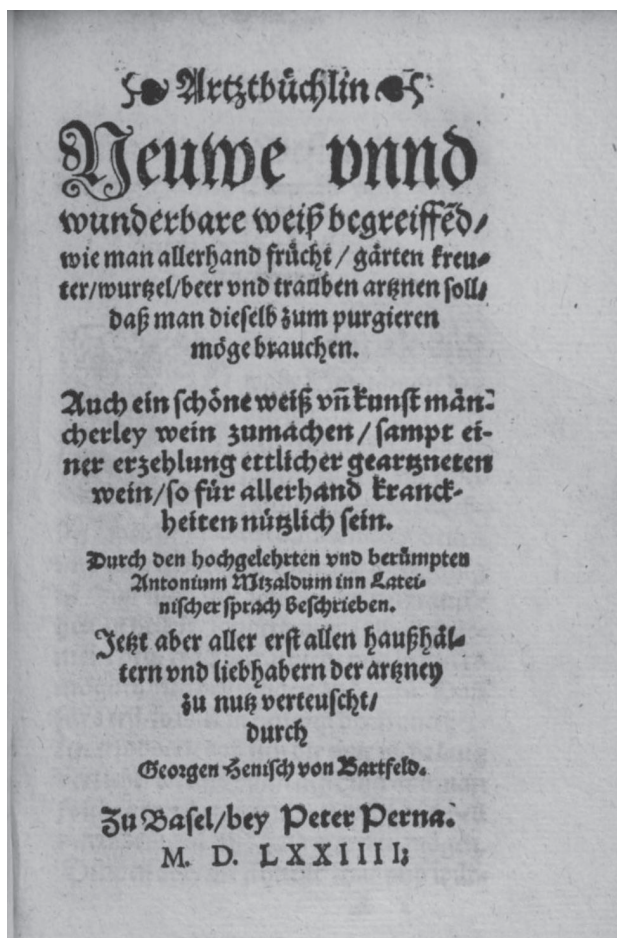 Artztbůchlin
Neuwe vnnd
wunderbare weiß begreiffẽd/
wie man allerhand frücht / gärten kreu-
ter/wurtzel/beer vnd trauben artznen soll/
daß man dieselb zum purgieren
möge brauchen.
Auch ein schöne weiß vñ kunst man-
cherley wein zumachen / sampt ei-
ner erzehlung ettlicher geartzneten
wein/so für allerhand kranck-
heiten nützlich sein.
Durch den hochgelehrten vnd berümpten
Antonium Mizaldum inn Latei-
nischer sprach beschrieben.
Jetzt aber aller erst allen haußhäl-
tern vnd liebhabern der artzney
zu nutz verteuscht/
durch
Georgen Henisch von Bartfeld.
Zu Basel/bey Peter Perna.
M. D. LXXIIII;